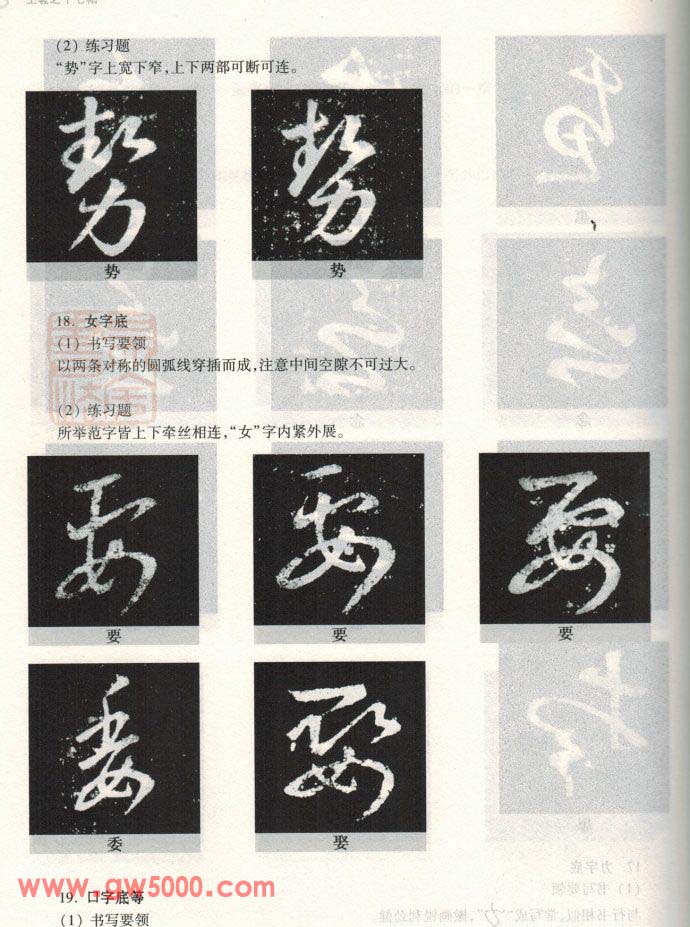 王羲之十七帖
(2) 练习题
“势”字上宽下窄,上下两部可断可连。
势 势
18. 女字底
(1) 书写要领
以两条对称的圆弧线穿插而成,注意中间空隙不可过大。
(2) 练习题
所举范字皆上下牵丝相连,“女”字内紧外展。
要 要 要
委 娶
www.gw5000.com
19. 口字底等
(1) 书写要领